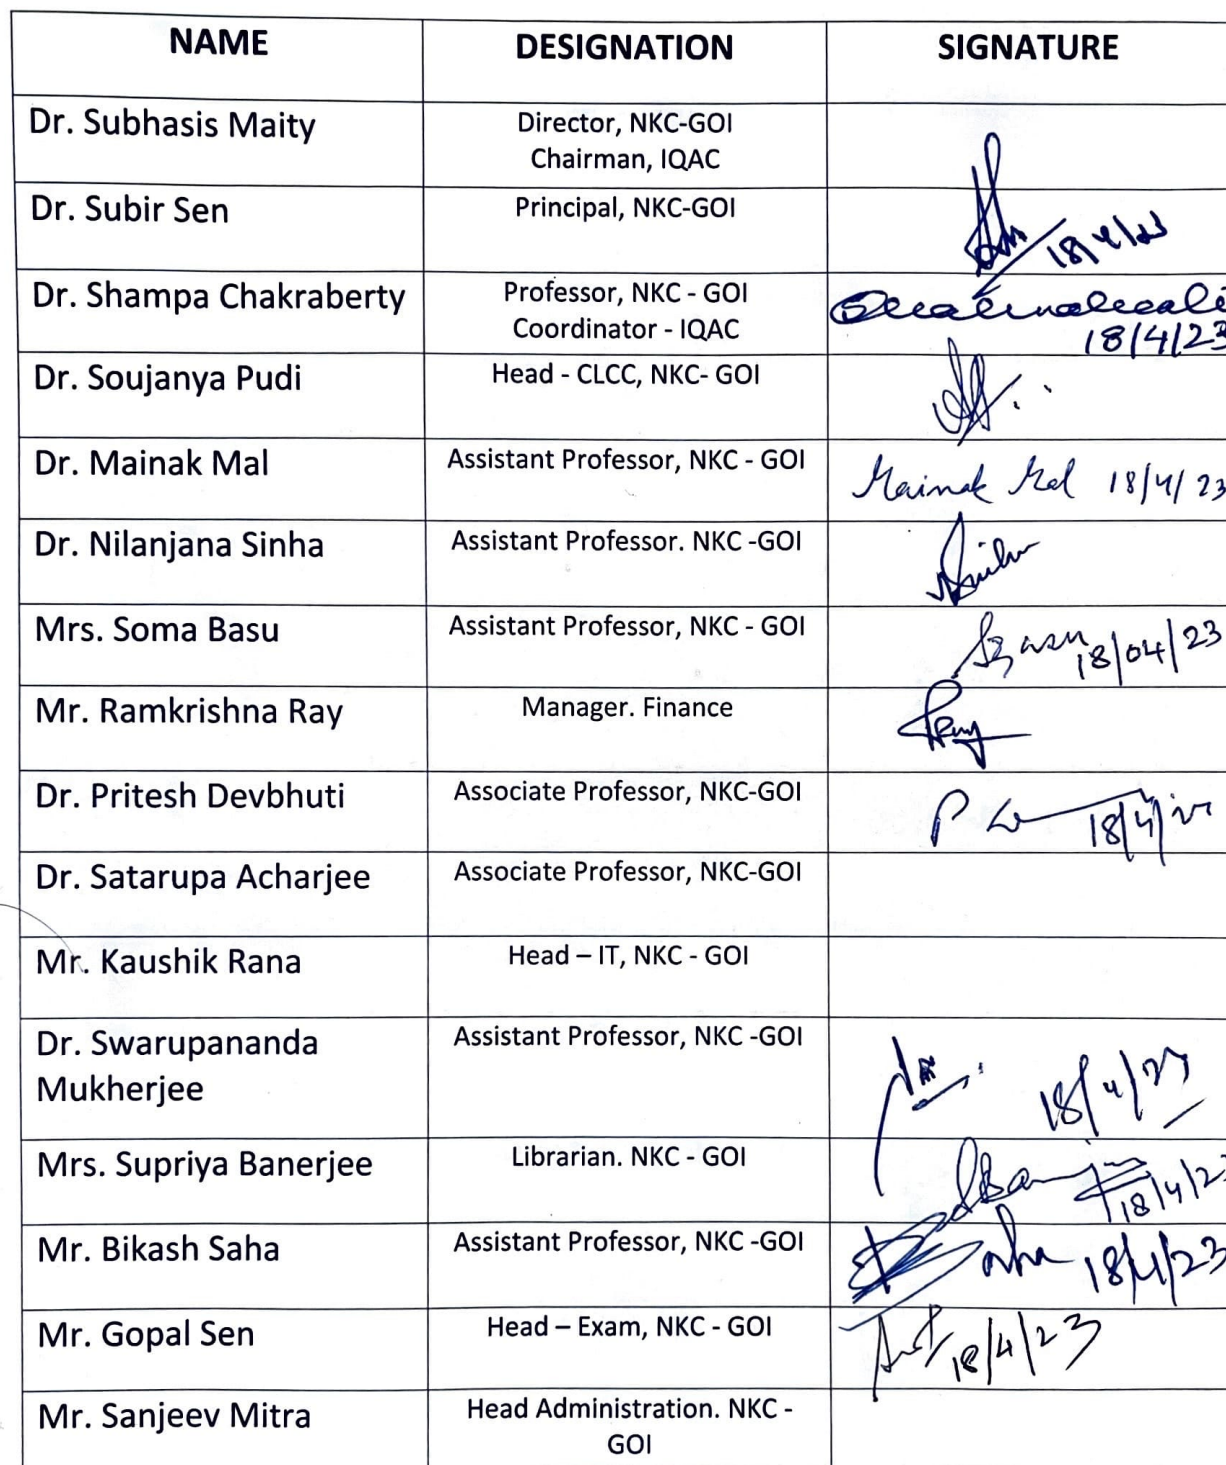 NAME DESIGNATION SIGNATURE
Dr. Subhasis Maity Director, NKC-GOI
Chairman, IQAC
Dr. Subir Sen Principal, NKC-GOI
18/4/23
Dr. Shampa Chakraberty Professor, NKC - GOI
Coordinator - IQAC 18/4/23
Dr. Soujanya Pudi Head - CLCC, NKC- GOI
Dr. Mainak Mal Assistant Professor, NKC - GOI Mainak Mal 18/4/23
Dr. Nilanjana Sinha Assistant Professor. NKC -GOI
Mrs. Soma Basu Assistant Professor, NKC - GOI SBasu 18/04/23
Mr. Ramkrishna Ray Manager. Finance
Dr. Pritesh Devbhuti Associate Professor, NKC-GOI 18/4/
Dr. Satarupa Acharjee Associate Professor, NKC-GOI
Mr. Kaushik Rana Head – IT, NKC - GOI
Dr. Swarupananda Assistant Professor, NKC -GOI
Mukherjee 18/4/23
Mrs. Supriya Banerjee Librarian. NKC - GOI
18/4/23
Mr. Bikash Saha Assistant Professor, NKC -GOI Saha 18/4/23
Mr. Gopal Sen Head – Exam, NKC - GOI 18/4/23
Mr. Sanjeev Mitra Head Administration. NKC -
GOI